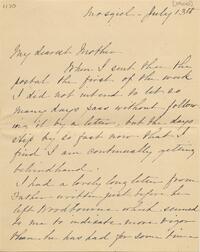 Mosgiel - July 13th
My dearest Mother
When I sent thee the
postal the first of the week
I did not intend to let so
many days pass without follow
ing it by a letter, but the days
slip by so fast now that I
find I am continually getting
behindhand.
I had a lovely long letter from
Father written just before he
left Woodbourne which seemed
to me to indicate more vigor
than he has had for some time